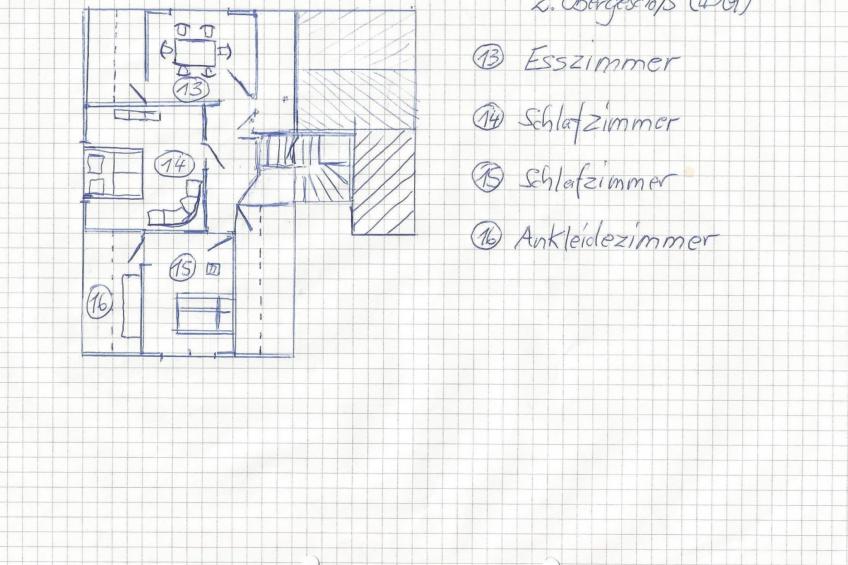 2. Obergeschoß (4.OG)
13 Esszimmer
14 Schlafzimmer
15 Schlafzimmer
16 Ankleidezimmer
13
14
15
16